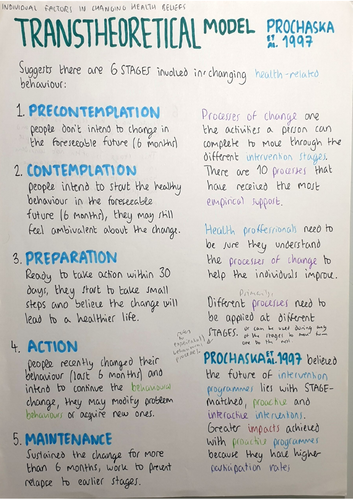 INDIVIDUAL FACTORS IN CHANGING HEALTH BELIEFS
TRANSTHEORETICAL MODEL
PROCHASKA
ET AL. 1997
Suggests there are 6 STAGES involved in changing health-related
behaviour:
1. PRECONTEMPLATION
people don't intend to change in
the foreseeable future (6 months)
2. CONTEMPLATION
people intend to start the healthy
behaviour in the foreseeable
future (6 months), they may still
feel ambivalent about the change.
3. PREPARATION
Ready to take action within 30
days, they start to take small
steps and believe the change will
lead to a healthier life.
4. ACTION
people recently changed their
behaviour (last 6 months) and
intend to continue the behaviour
change, they may modify problem
behaviours or acquire new ones.
5. MAINTENANCE
Sustained the change for more
than 6 months, work to prevent
relapce to earlier stages.
Processes of change are
the activities a person can
complete to move through the
different intervention stages.
There are 10 processes that
have received the most
empirical support.
Health proffesionals need to
be sure they understand
the processes of change to
help the individuals improve.
Primarily,
Different processes need to
be applied at different
STAGES. or can be used during any
of the stages to move from
one to the next
PROCHASKA ET AL. 1997 believed
the future of intervention
programmes lies with STAGE-
matched, proactive and
interactive interventions.
Greater impacts achieved
with proactive programmes
because they have higher
participation rates